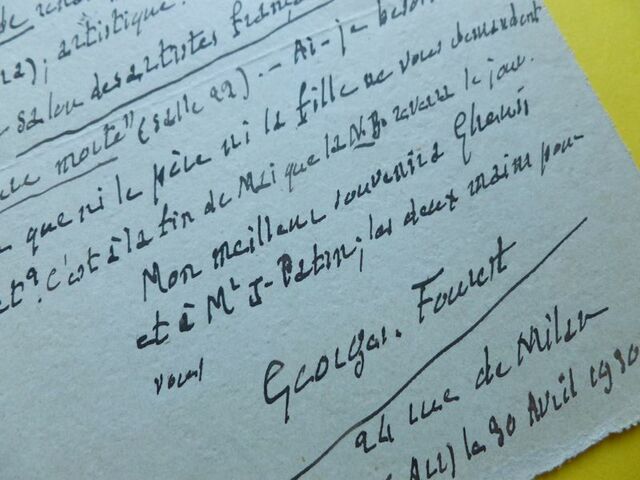 artistique.
salon des artistes franç
morte" (salle 22). - Ai-je besoin
que ni le père ni la fille ne vous demandent
C'est à la fin de Mai que la N. B. reverra le jour.
Mon meilleur souvenir à Ghenis
et à Mr J-Patin; les deux mains pour
vous
Georges. Fourest
24 rue de Milan
le 30 Avril 1930